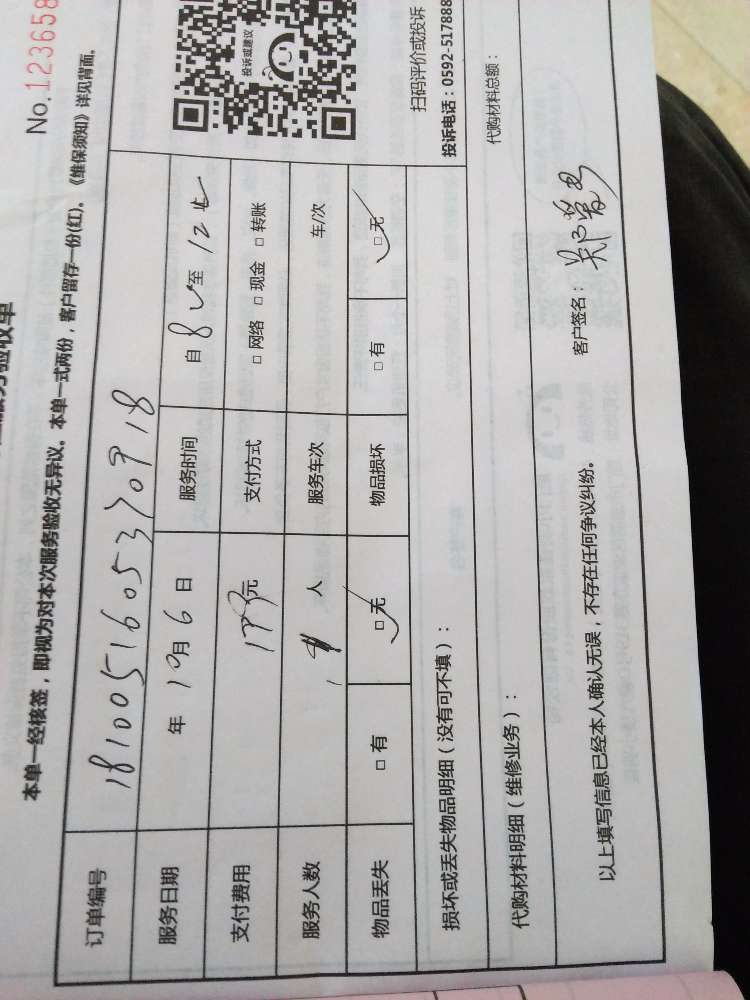 No.123658
本单一经核签，即视为对本次服务验收无异议。本单一式两份，客户留存一份(红)。《维保须知》详见背面。
订单编号 1810051605370918
服务日期 年 10月 6 日 服务时间 自 8 至 12
支付费用 元 支付方式 □ 网络 □ 现金 □ 转账
服务人数 人 服务车次 车/次
物品丢失 □ 有 □ 无 物品损坏 □ 有 □ 无
损坏或丢失物品明细（没有可不填）：
代购材料明细（维修业务）： 代购材料总额：
以上填写信息已经本人确认无误，不存在任何争议纠纷。 客户签名：
投诉或建议
扫码评价或投诉
投诉电话：0592-517888